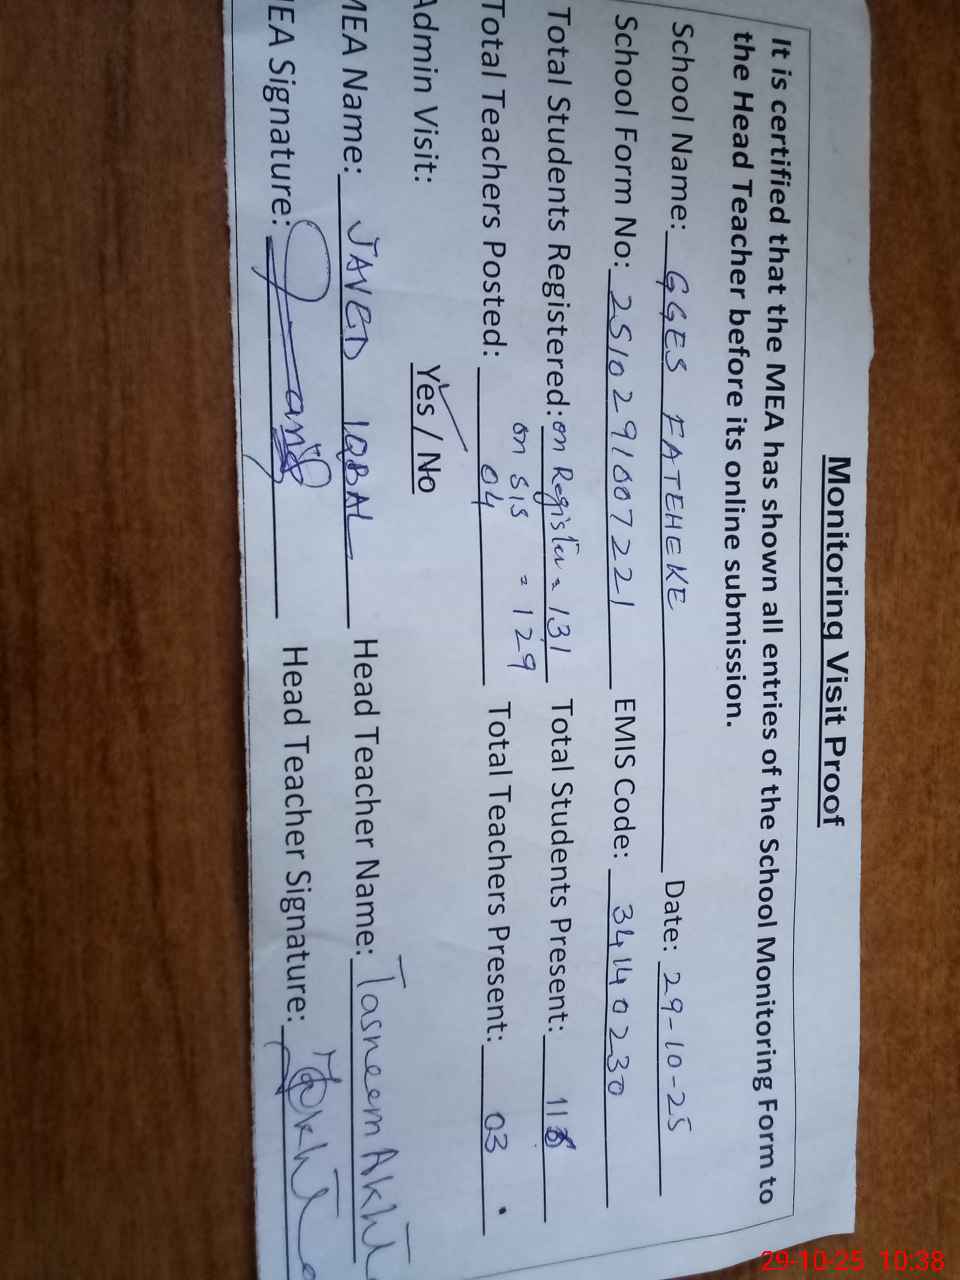 Monitoring Visit Proof
It is certified that the MEA has shown all entries of the School Monitoring Form to
the Head Teacher before its online submission.
School Name: GGES FATEHEKE Date: 29-10-25
School Form No: 2510291007221 EMIS Code: 34140230
Total Students Registered: on Register = 131 Total Students Present: 118
on SIS = 129
Total Teachers Posted: 04 Total Teachers Present: 03
Admin Visit: Yes / No
MEA Name: JAVED IQBAL Head Teacher Name: Tasneem Akht
EA Signature: Head Teacher Signature:
29-10-25 10:38